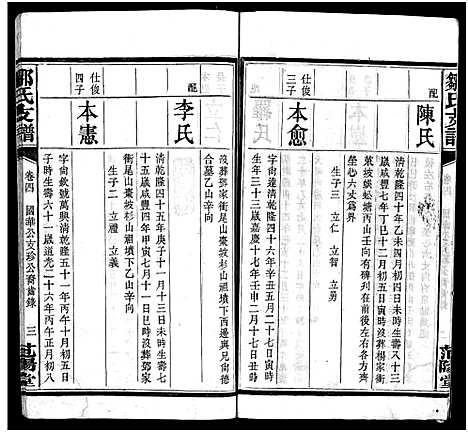 鄒氏支譜
配 陳氏
清乾隆四十年乙未四月初四日辰時生壽八十三
歲咸豐七年丁巳十二月初五日寅時沒葬楊家衝
茱坡蜈蚣塘丙山壬向有碑列在後日後各方齊
坐志六丈爲界
生子三 立仁 立智 立勇
仕俊三子 本愈
字向達清乾隆四十六年辛丑五月二十七日寅時
生年三十三歲嘉慶十七年壬申二月十七日
沒葬鄧家衝尾山臺坡杉山祖墳下西邊與兄向德
合墓乙山辛向
李氏
清乾隆四十五年庚子十一月十三日亥時生壽七
十五歲咸豐四年甲寅七月十一日巳時沒葬鄧家
衝尾山臺坡杉山祖墳下乙山辛向
生子二 立禮 立義
仕俊四子 本憲
字向欽號萬興清乾隆五十一年丙午十月初五日
子時生壽六十一歲道光二十六年丙午正月初八
鄒氏支譜
卷四 國華公支珍公裔齒錄 三
范陽堂
范陽堂